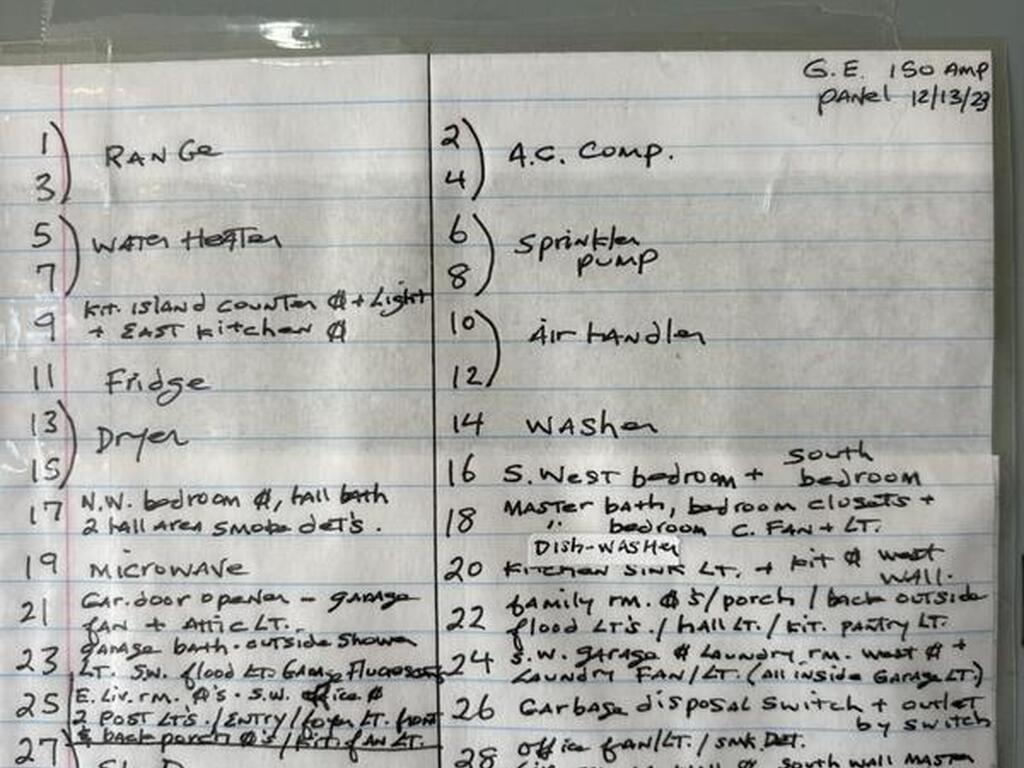 G.E. 150 AMP
PANEL 12/13/23
1
RANGE
3
5
WATER HEATER
7
KIT. ISLAND COUNTER ⏀ + Light
9 + EAST KITCHEN ⏀
11 Fridge
13
Dryer
15
17 N.W. bedroom ⏀, hall bath
2 hall area smoke det's.
19 MICROWAVE
21 GAR. door opener - GARAGE
FAN + Attic LT.
23 GARAGE bath. outside shower
LT. S.W. flood LT.
25 E. Liv. rm. ⏀'s. S.W. office ⏀
2 POST LT'S. / ENTRY / foyer LT. front
27 & back porch ⏀'s / kit. fan LT.
2
A.C. Comp.
4
6
Sprinkler
pump
8
10
Air handler
12
14 WASher
16 S. West bedroom + South bedroom
18 MASTER bath, bedroom closets +
" bedroom C. FAN + LT.
DISH-WASHER
20 KITCHEN SINK LT. + kit ⏀ west
WALL.
22 family rm. ⏀'s / porch / back outside
flood LT'S. / hall LT. / kit. pantry LT.
24 S.W. garage ⏀ Laundry rm. west ⏀ +
Laundry FAN/LT. (All inside Garage LT.)
26 Garbage disposal switch + outlet
by switch
28 office fan/LT. / smk. Det.
south wall MASTER